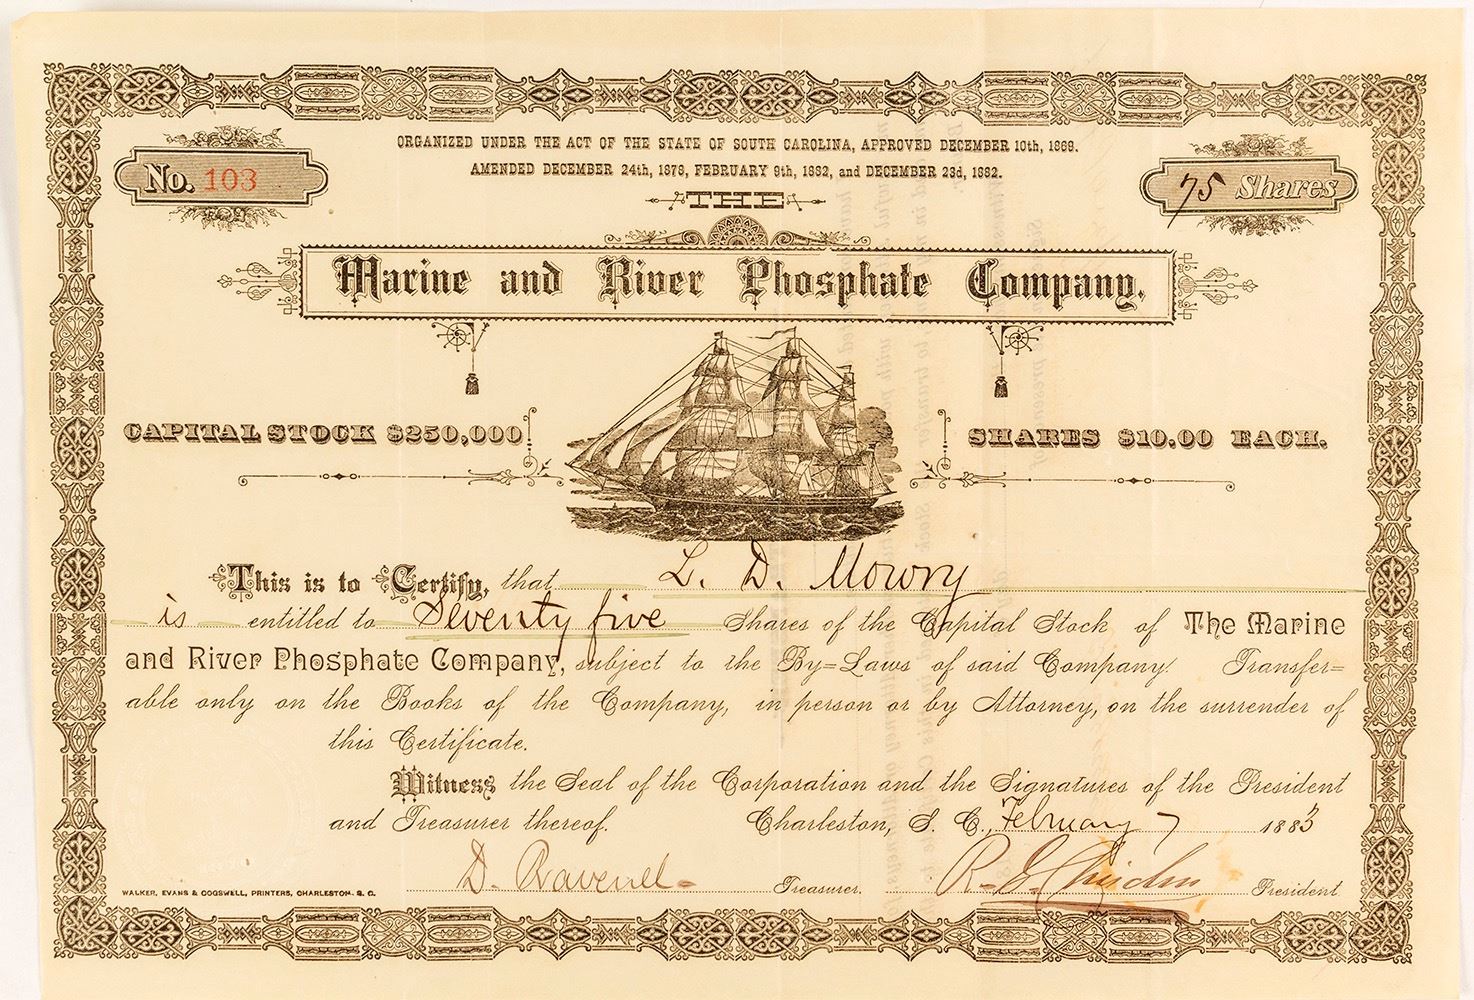 ORGANIZED UNDER THE ACT OF THE STATE OF SOUTH CAROLINA, APPROVED DECEMBER 10th, 1869.
AMENDED DECEMBER 24th, 1879, FEBRUARY 9th, 1882, and DECEMBER 23d, 1882.
No. 103
75 Shares
THE
Marine and River Phosphate Company.
CAPITAL STOCK $250,000
SHARES $10.00 EACH.
This is to Certify, that L. D. Mowry
is entitled to Seventy five Shares of the Capital Stock of The Marine
and River Phosphate Company, subject to the By=Laws of said Company. Transfer=
able only on the Books of the Company, in person or by Attorney, on the surrender of
this Certificate.
Witness the Seal of the Corporation and the Signatures of the President
and Treasurer thereof. Charleston, S. C., February 7 1883
D. Ravenel Treasurer. R. President.
WALKER, EVANS & COGSWELL, PRINTERS, CHARLESTON. S. C.